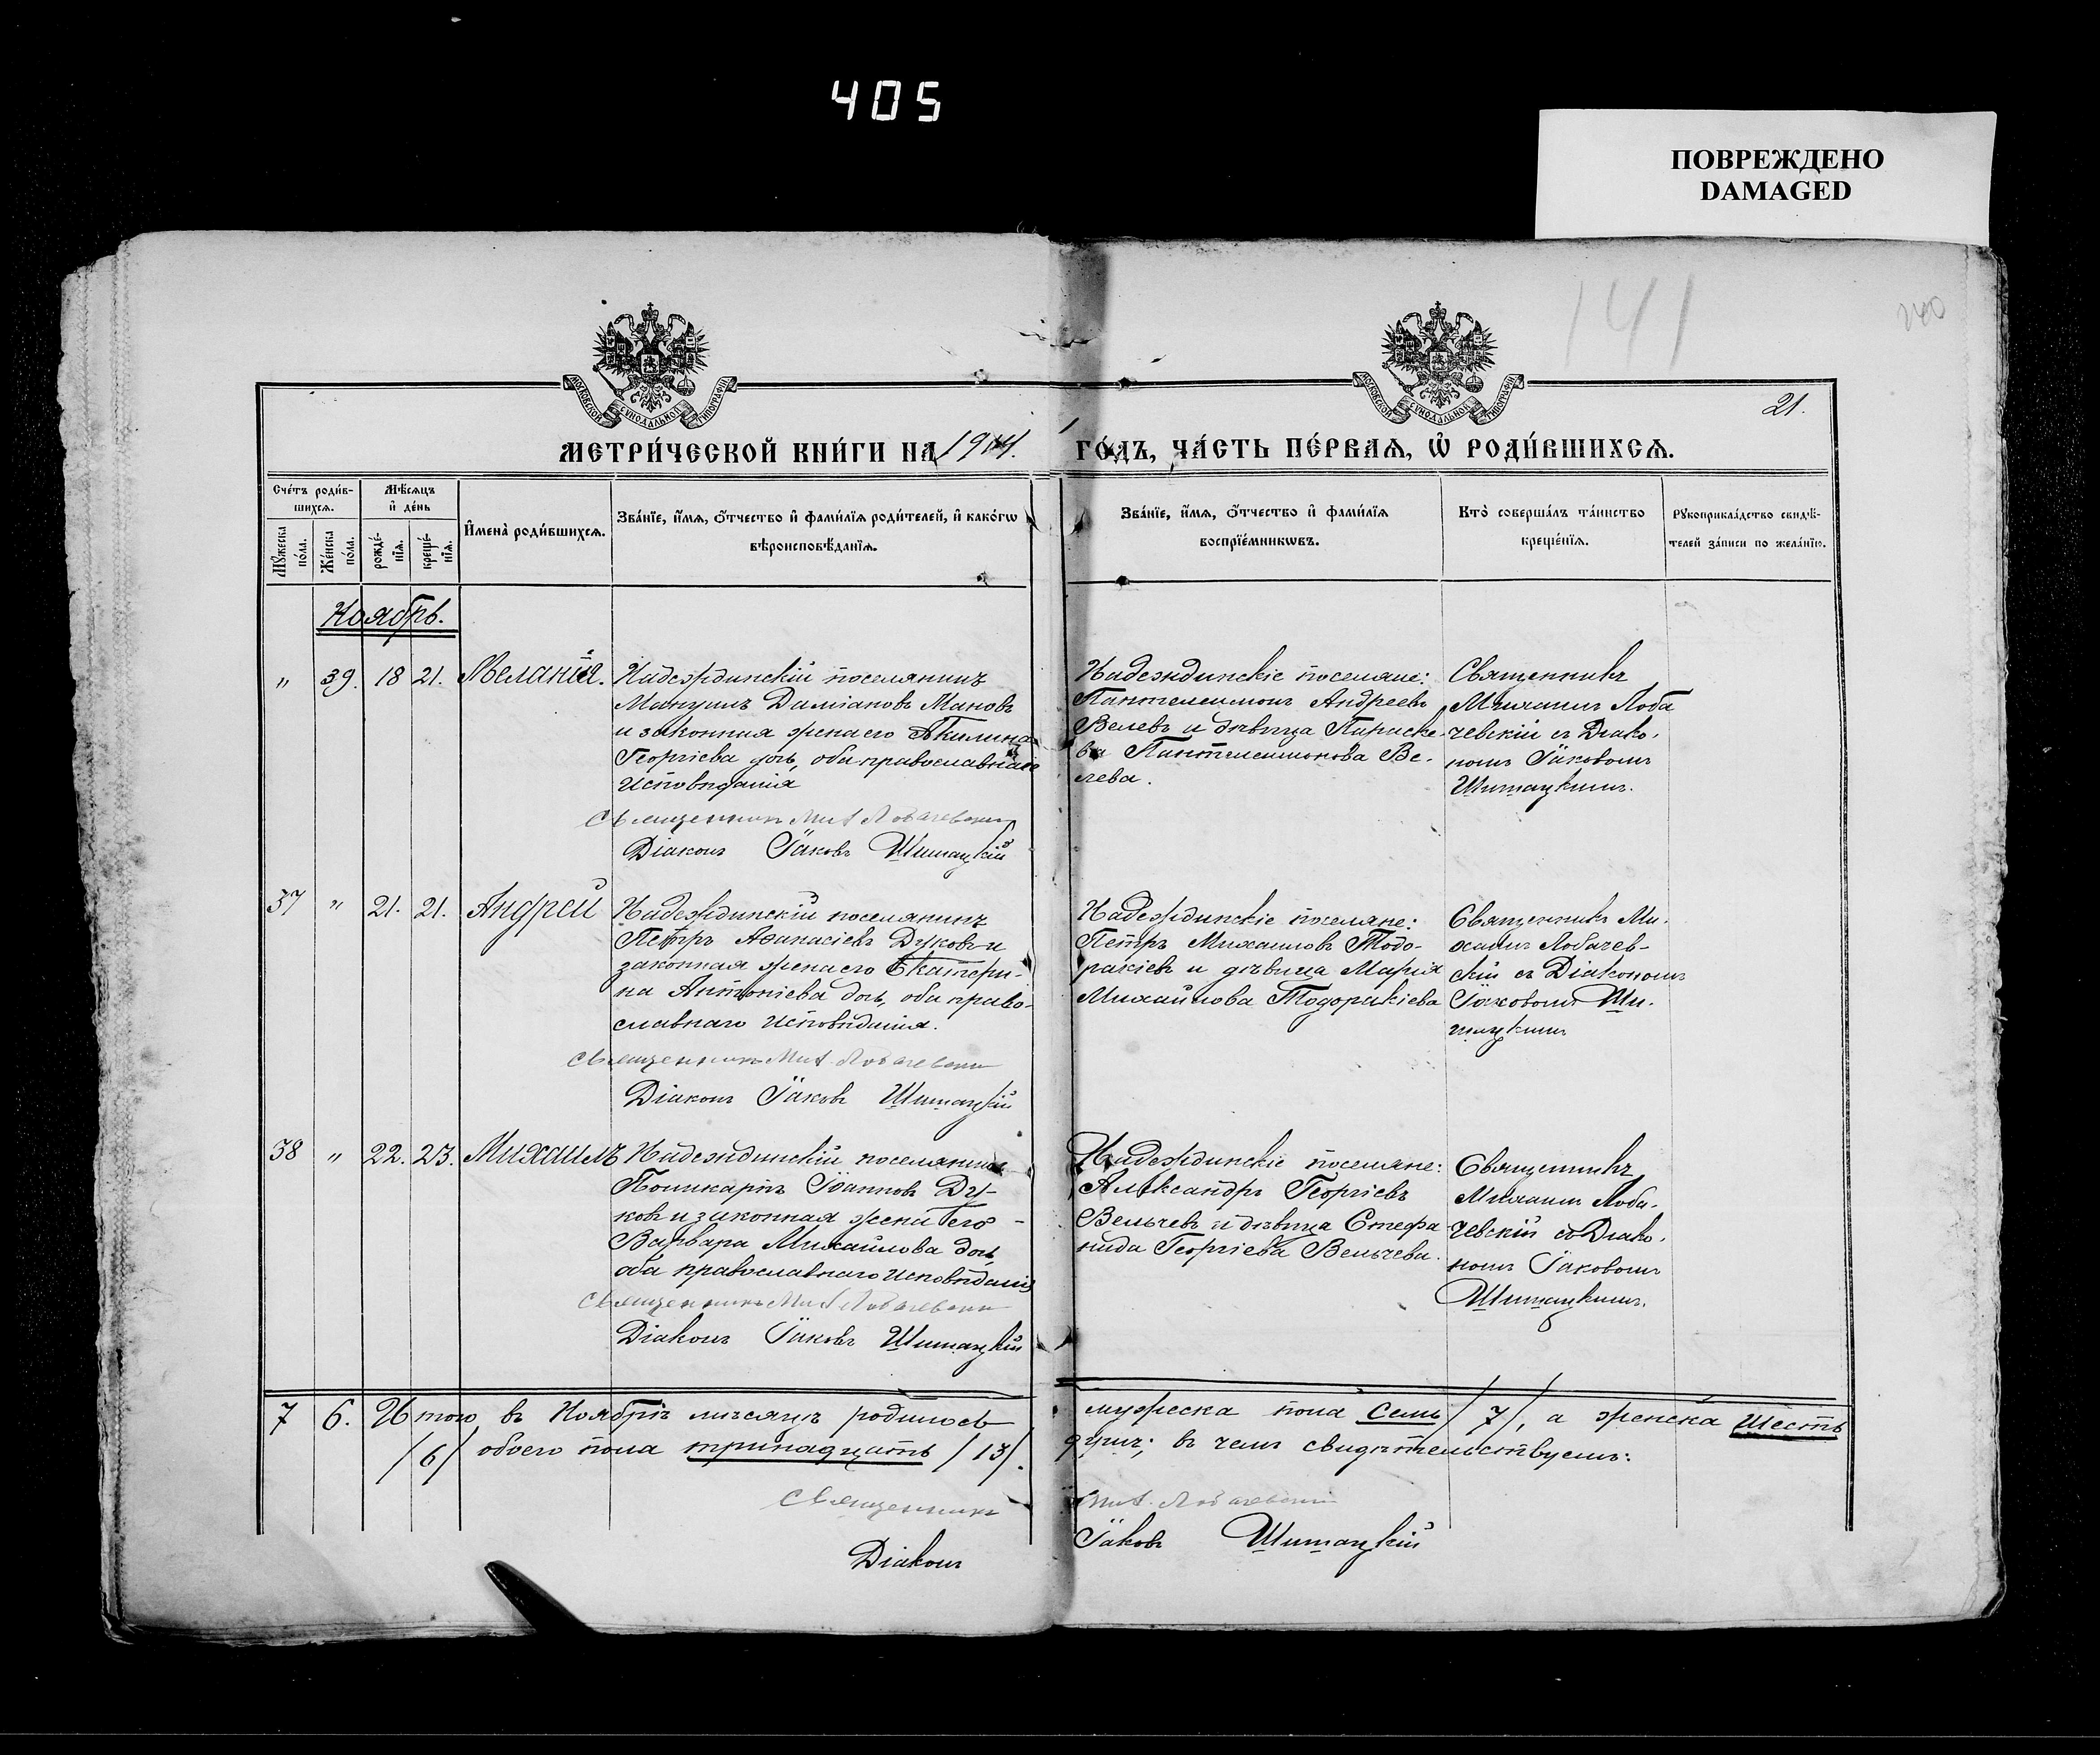 405
ПОВРЕЖДЕНО
DAMAGED
141
21.
МОСКОВСКОЙ СУНОДАЛЬНОЙ ТИПОГРАФІИ
МОСКОВСКОЙ СУНОДАЛЬНОЙ ТИПОГРАФІИ
МЕТРИ́ЧЕСКОЙ КНИ́ГИ НА ГО́ДЪ, ЧА́СТЬ ПЕ́РВАЯ, Ѡ҆ РОДИ́ВШИХСЯ.
Сче́тъ роди́в-
шихся.
Мѣ́сяцъ
и҆ де́нь
Мꙋ́жеска по́ла.
Же́нска по́ла.
рожде́-
нїя.
креще́-
нїя.
И҆мена̀ роди́вшихся.
Зва́нїе, и҆́мя, ѻ҆́тчество и҆ фами́лїя роди́телей, и҆ како́гѡ
вѣроисповѣ́данїя.
Зва́нїе, и҆́мя, ѻ҆́тчество и҆ фами́лїя
воспрїе́мникѡвъ.
Кто̀ соверша́лъ та́инство
креще́нїя.
Рꙋкоприкла́дство свидѣ́-
телей за́писи по жела́нїю.
Ноябрь.
" 39. 18 21. Меланія.
Надеждинскій поселянинъ
Мануилъ Даміановъ Мановъ
и законная жена его Акилина
Георгіева дочь, оба православнаго
исповѣданія
Священникъ Мих Лобачевскій
Діаконъ Іаковъ Шишацкій
Надеждинскіе поселяне:
Пантелеимонъ Андреевъ
Велевъ и дѣвица Параске
ва Пантелеимонова Ве-
лева.
Священникъ
Михаилъ Лоба
чевскій съ Діако-
номъ Іаковомъ
Шишацкимъ.
37 " 21. 21. Андрей
Надеждинскій поселянинъ
Петръ Аѳанасіевъ Дуковъ и
законная жена его Екатери-
на Антоніева дочь, оба право-
славнаго исповѣданія.
Священникъ Мих. Лобачевскій
Діаконъ Іаковъ Шишацкій
Надеждинскіе поселяне:
Петръ Михаиловъ Тодо-
ракіевъ и дѣвица Марія
Михайлова Тодоракіева
Священникъ Ми-
хаилъ Лобачев-
скій съ Діакономъ
Іаковомъ Ши-
шацкимъ
38 " 22. 23. Михаилъ
Надеждинскій поселянинъ
Поликарпъ Іоанновъ Ду-
ковъ и законная жена его -
Варвара Михайлова дочь,
оба православнаго исповѣданія
Священникъ Мих Лобачевскій
Діаконъ Іаковъ Шишацкій
Надеждинскіе поселяне:
Александръ Георгіевъ
Вельчевъ и дѣвица Стефа
нида Георгіева Вельчева.
Священникъ
Михаилъ Лоба-
чевскій съ Діако-
номъ Іаковомъ
Шишацкимъ.
7 6. Итого въ Ноябрѣ мѣсяцѣ родилось мужеска пола семь /7/, а женска шесть
/6/ обоего пола тринадцать /13/. душъ; въ чемъ свидѣтельствуемъ:
Священникъ Мих. Лобачевскій
Діаконъ Іаковъ Шишацкій